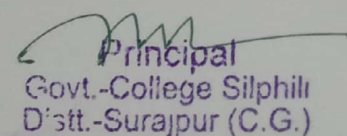 Principal
Govt.-College Silphili
D'stt.-Surajpur (C.G.)